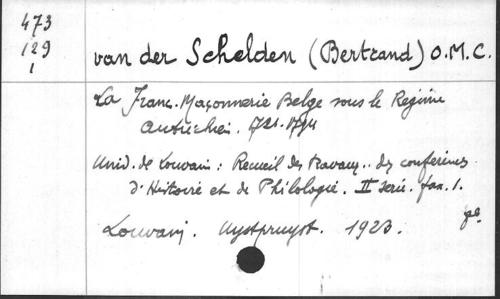 473
129
1
van der Schelden (Bertrand) O.M.C.
La Franc-Maçonnerie Belge sous le Régime
Autrichien. 1721-1794
Univ. de Louvain : Recueil des Travaux .. des conférences
d'Histoire et de Philologie. II serie. fax. 1.
Louvain. Uystpruyst. 1923.